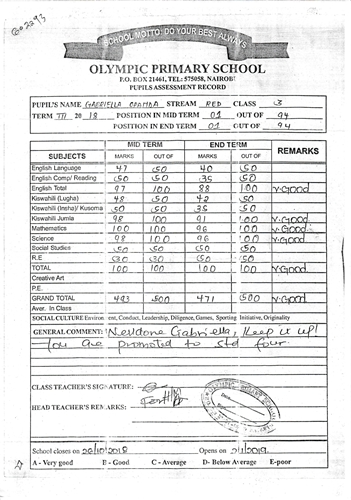 SCHOOL MOTTO: DO YOUR BEST ALWAYS
OLYMPIC PRIMARY SCHOOL
P.O. BOX 21461, TEL: 575058, NAIROBI
PUPILS ASSESSMENT RECORD
PUPIL'S NAME GABRIELLA STREAM RED CLASS 3
TERM III 2018 POSITION IN MID TERM 01 OUT OF 94
POSITION IN END TERM 01 OUT OF 94
MID TERM END TERM REMARKS
SUBJECTS MARKS OUT OF MARKS OUT OF
English Language 47 50 40 50
English Comp/ Reading 50 50 50
English Total 97 100 88 100 V-Good
Kiswahili (Lugha) 48 50 42 50
Kiswahili (Insha)/ Kusoma 50 50 50
Kiswahili Jumla 98 100 91 100 V-Good
Mathematics 100 100 96 100 V-Good
Science 98 100 96 100 V-Good
Social Studies 50 50 50 50
R.E 50 50
TOTAL 100 100 100 100 V-Good
Creative Art
P.E.
GRAND TOTAL 493 500 471 500 V-Good
Aver. In Class
SOCIAL CULTURE Environment, Conduct, Leadership, Diligence, Games, Sporting Initiative, Originality
GENERAL COMMENT: Welldone Gabriella, Keep it up!
You are promoted to std four.
CLASS TEACHER'S SIGNATURE:
HEAD TEACHER'S REMARKS:
OLYMPIC PRIMARY SCHOOL
School closes on 26/10/2018 Opens on 2/1/2019
A - Very good B - Good C - Average D- Below Average E-poor